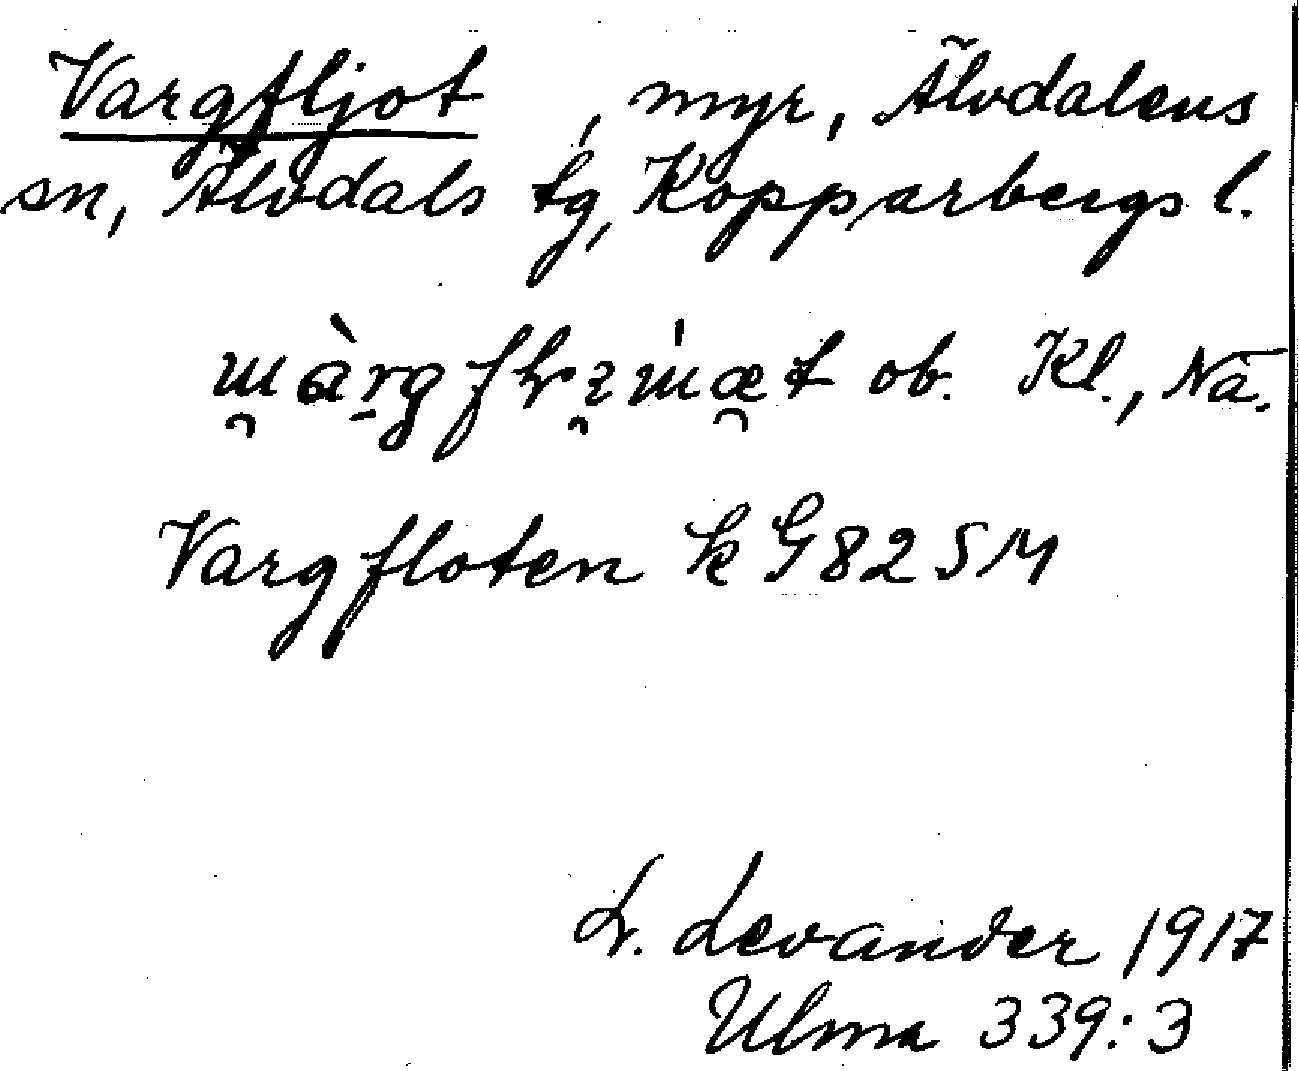 Vargfljot, myr, Älvdalens
sn, Älvdals tg, Kopparbergs l.
ob. Kl., Nä.
Vargfloten k G82 SM
L. Levander 1917
Ulma 339:3